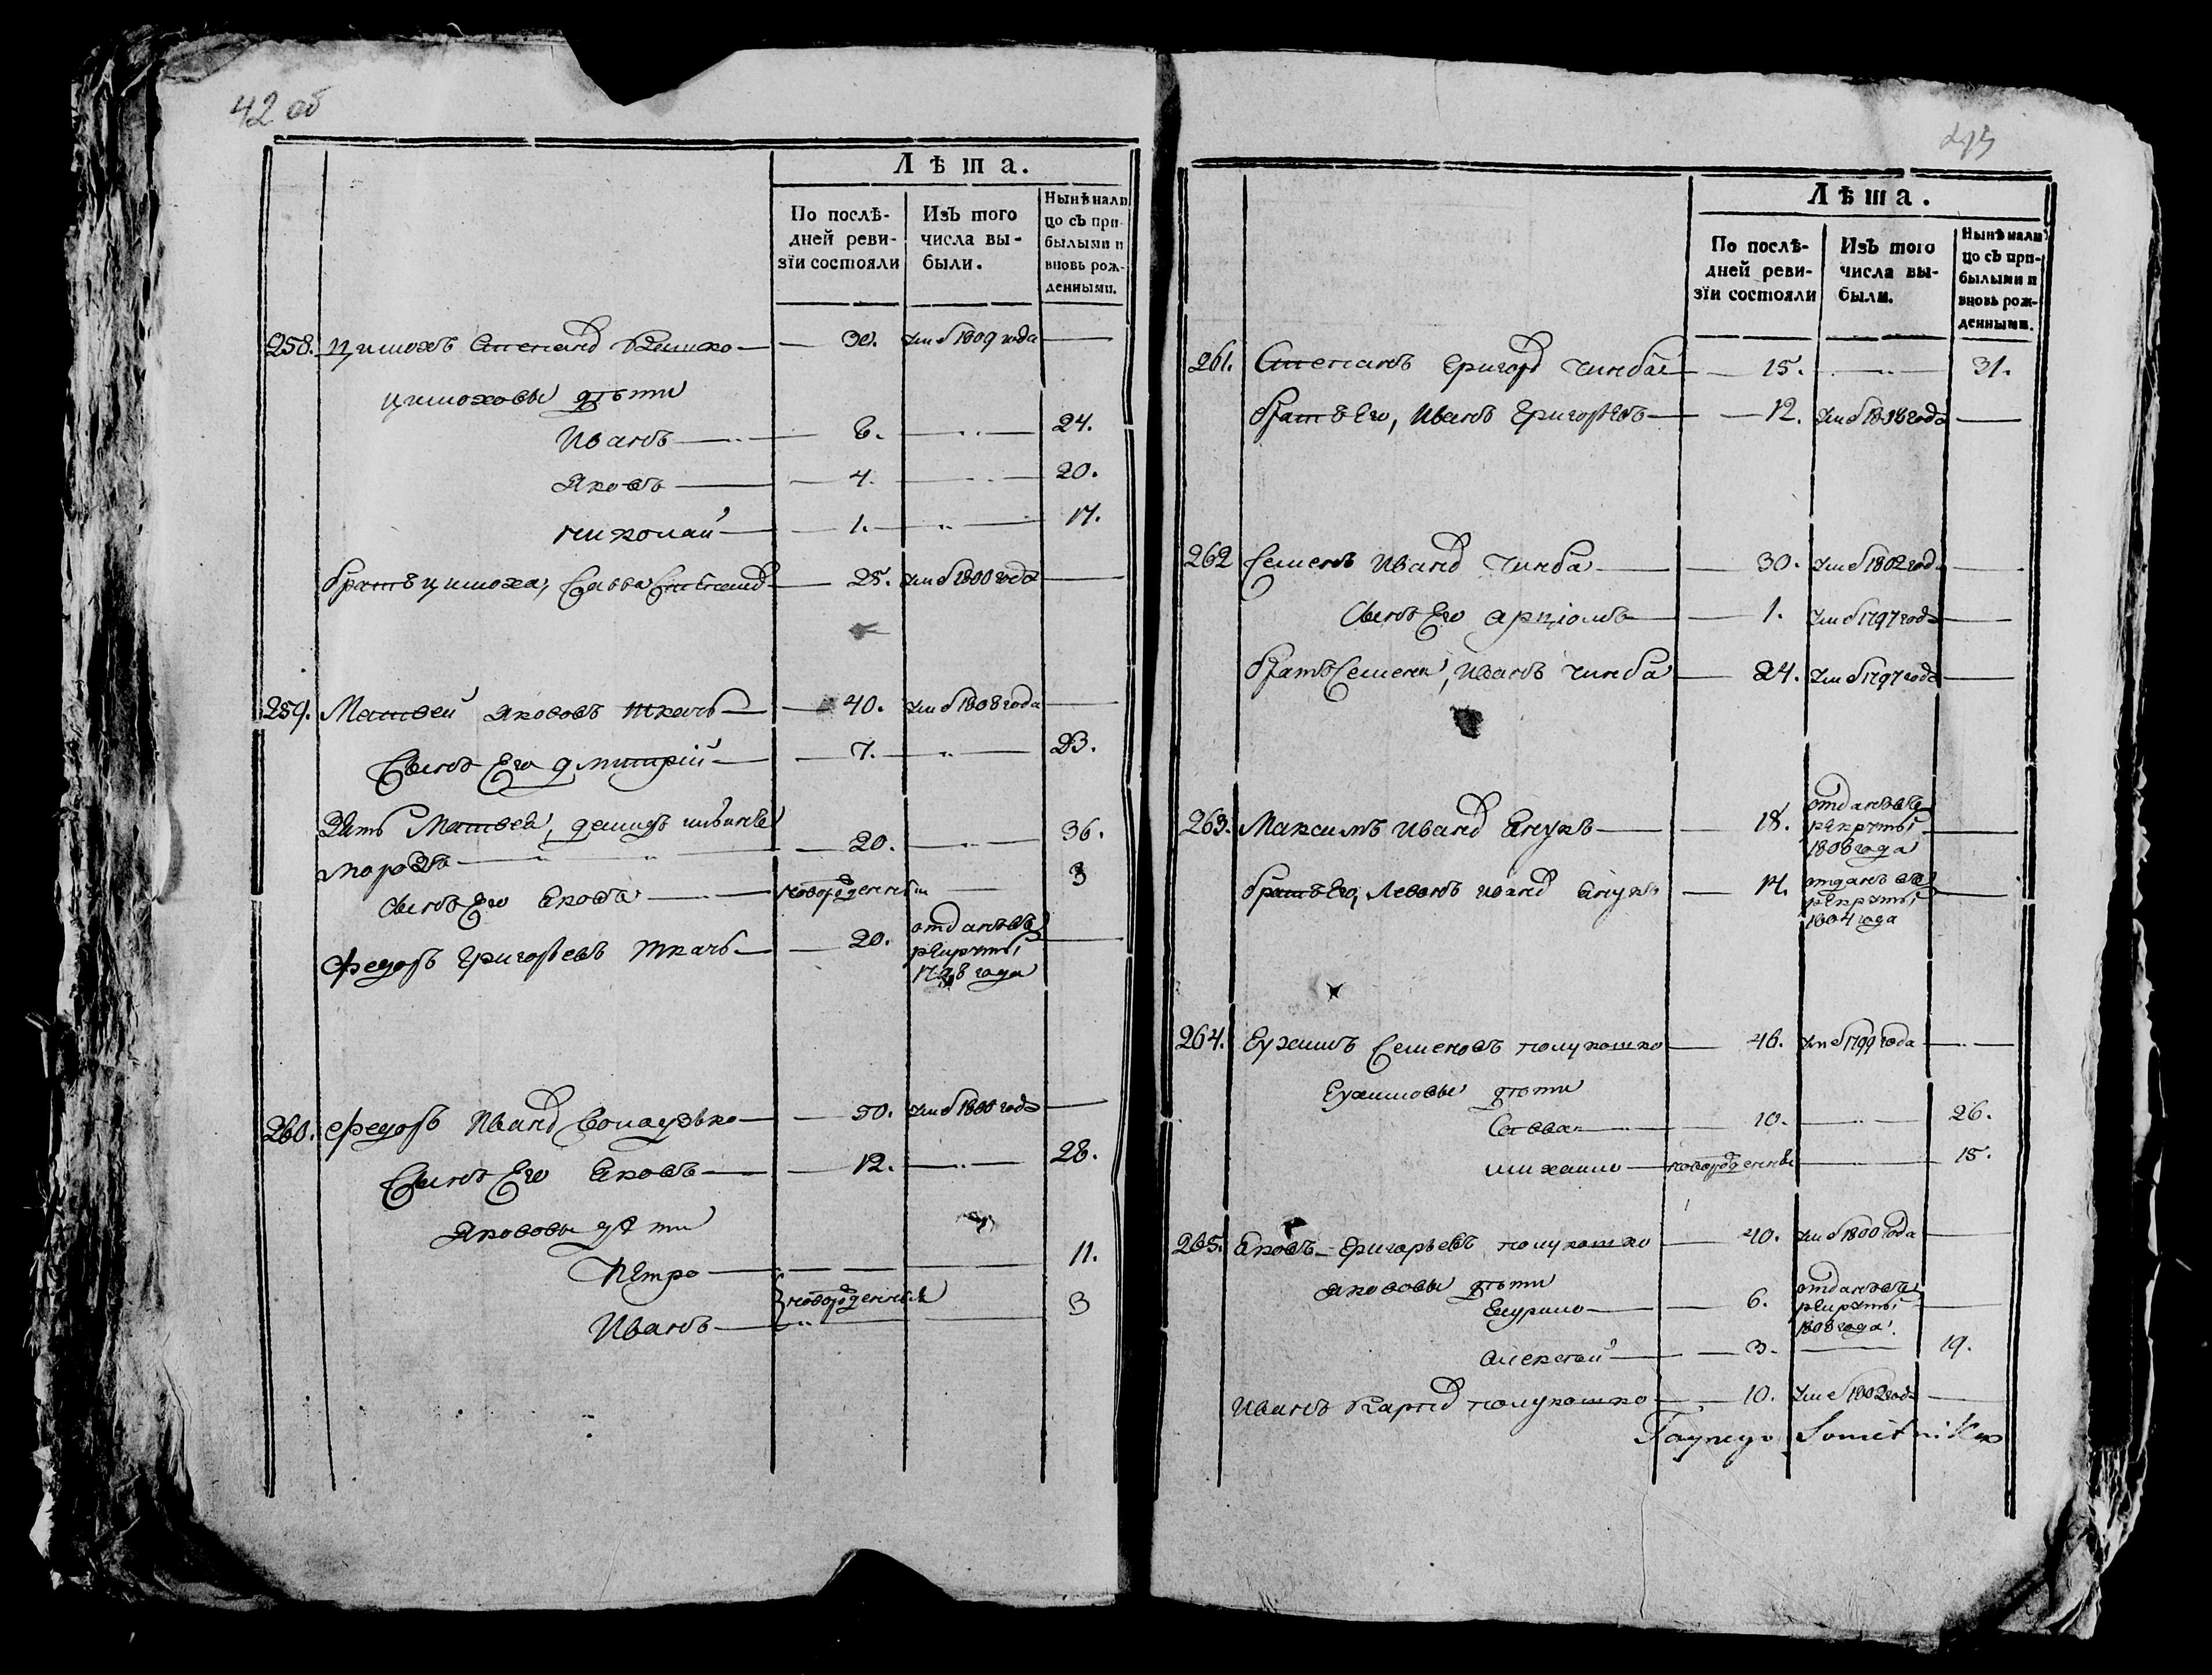 42 об
Лѣта.
По послѣ-
дней реви-
зїи состояли
Изъ того
числа вы-
были.
Нынѣ нали
цо съ при-
былыми и
вновь рож-
денными.
258. Цимохъ Степанов — 30. Ум. 1809 года —
Цимоховы дѣти
Иванъ — 8. — 24.
Яковъ — 4. — 20.
Николай — 1. — 17.
братъ Цимоха, Савва Степанов — 25. Ум. 1800 года —
259. Матвей Якововъ Ткачъ — 40. Ум. 1808 года —
Сынъ Его Дмитрій — 7. — 23.
Зять Матвея, Демидъ
Морозъ — 20. — 36.
Сынъ Его Яковъ — новорожденный — 3
Федоръ Григорьевъ Ткачъ — 20. отданъ въ
рекруты
1798 года
260. Федоръ Иванов — 50. Ум. 1800 года —
Сынъ Его Яковъ — 12. — 28.
Якововы дѣти
Петро — 11.
новорожденныя
Иванъ — 3
Лѣта.
По послѣ-
дней реви-
зїи состояли
Изъ того
числа вы-
были.
Нынѣ нали
цо съ при-
былыми и
вновь рож-
денными.
261. Степанъ Григор Чимба — 15. — 31.
братъ Его, Иванъ Григорьевъ — 12. Ум. года —
262 Семенъ Иванов Чимба — 30. Ум. 1802 год —
Сынъ Его Арціомъ — 1. Ум. 1797 года —
братъ Семена, Иванъ Чимба — 24. Ум. 1797 года —
263. Максимъ Иванов — 18. отданъ въ
рекруты
1808 года
братъ Его, Левонъ Иванов — 14. отданъ въ
рекруты
1804 года
264. Еухимъ Семеновъ Полукошко — 46. Ум. 1799 года —
Еухимовы дѣти
Савва — 10. — 26.
Михайло — новорожденны — 15.
265. Яковъ Григорьевъ Полукошко — 40. Ум. 1800 года —
Якововы дѣти
— 6. отданъ въ
рекруты
1808 года.
Алексей — 3. — 19.
Иванъ Карпов Полукошко — 10. Ум. 1802 года —